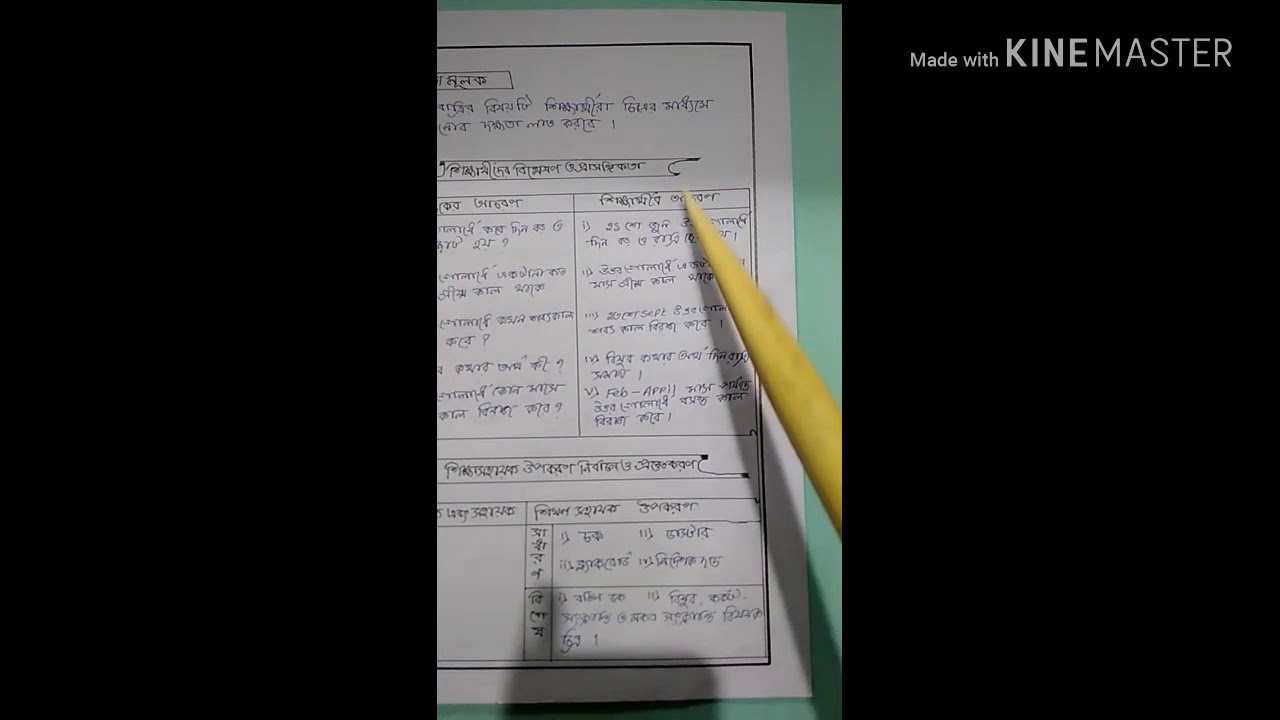 Made with KINEMASTER
মূলক
বিষয়টি শিক্ষার্থীরা চিত্রের মাধ্যমে
দক্ষতা লাভ করবে ।
শিক্ষার্থীদের বিশ্লেষণ ও প্রাসঙ্গিকতা
কের আচরণ
শিক্ষার্থীর আচরণ
গোলার্ধে কবে দিন বড় ও
হয় ?
i) ২১ শে জুন গোলার্ধে
দিন বড় ও রাত্রি
গোলার্ধে একটানা কত
গ্রীষ্ম কাল থাকে
ii) উত্তর গোলার্ধে
মাস গ্রীষ্ম কাল থাকে
গোলার্ধে কখন শরৎকাল
করে ?
iii) ২৩ শে Sept উত্তর গোলা
শরৎ কাল বিরাজ করে ।
কথার অর্থ কী ?
iv) বিষুব কথার অর্থ দিন রাত্রি
সমান ।
গোলার্ধে কোন মাসে
কাল বিরাজ করে ?
v) Feb - April মাস পর্যন্ত
উত্তর গোলার্ধে বসন্ত কাল
বিরাজ করে ।
শিক্ষাসহায়ক উপকরণ নির্বাচন ও প্রস্তুতকরণ
সহায়ক
শিখন সহায়ক উপকরণ
সাধারণ
i) চক iii) ডাস্টার
ii) ব্ল্যাকবোর্ড iv) নির্দেশক দন্ড
বিশেষ
i) রঙিন চক ii) বিষুব, কর্কট
সংক্রান্তি ও মকর সংক্রান্তি বিষয়ক
চিত্র ।